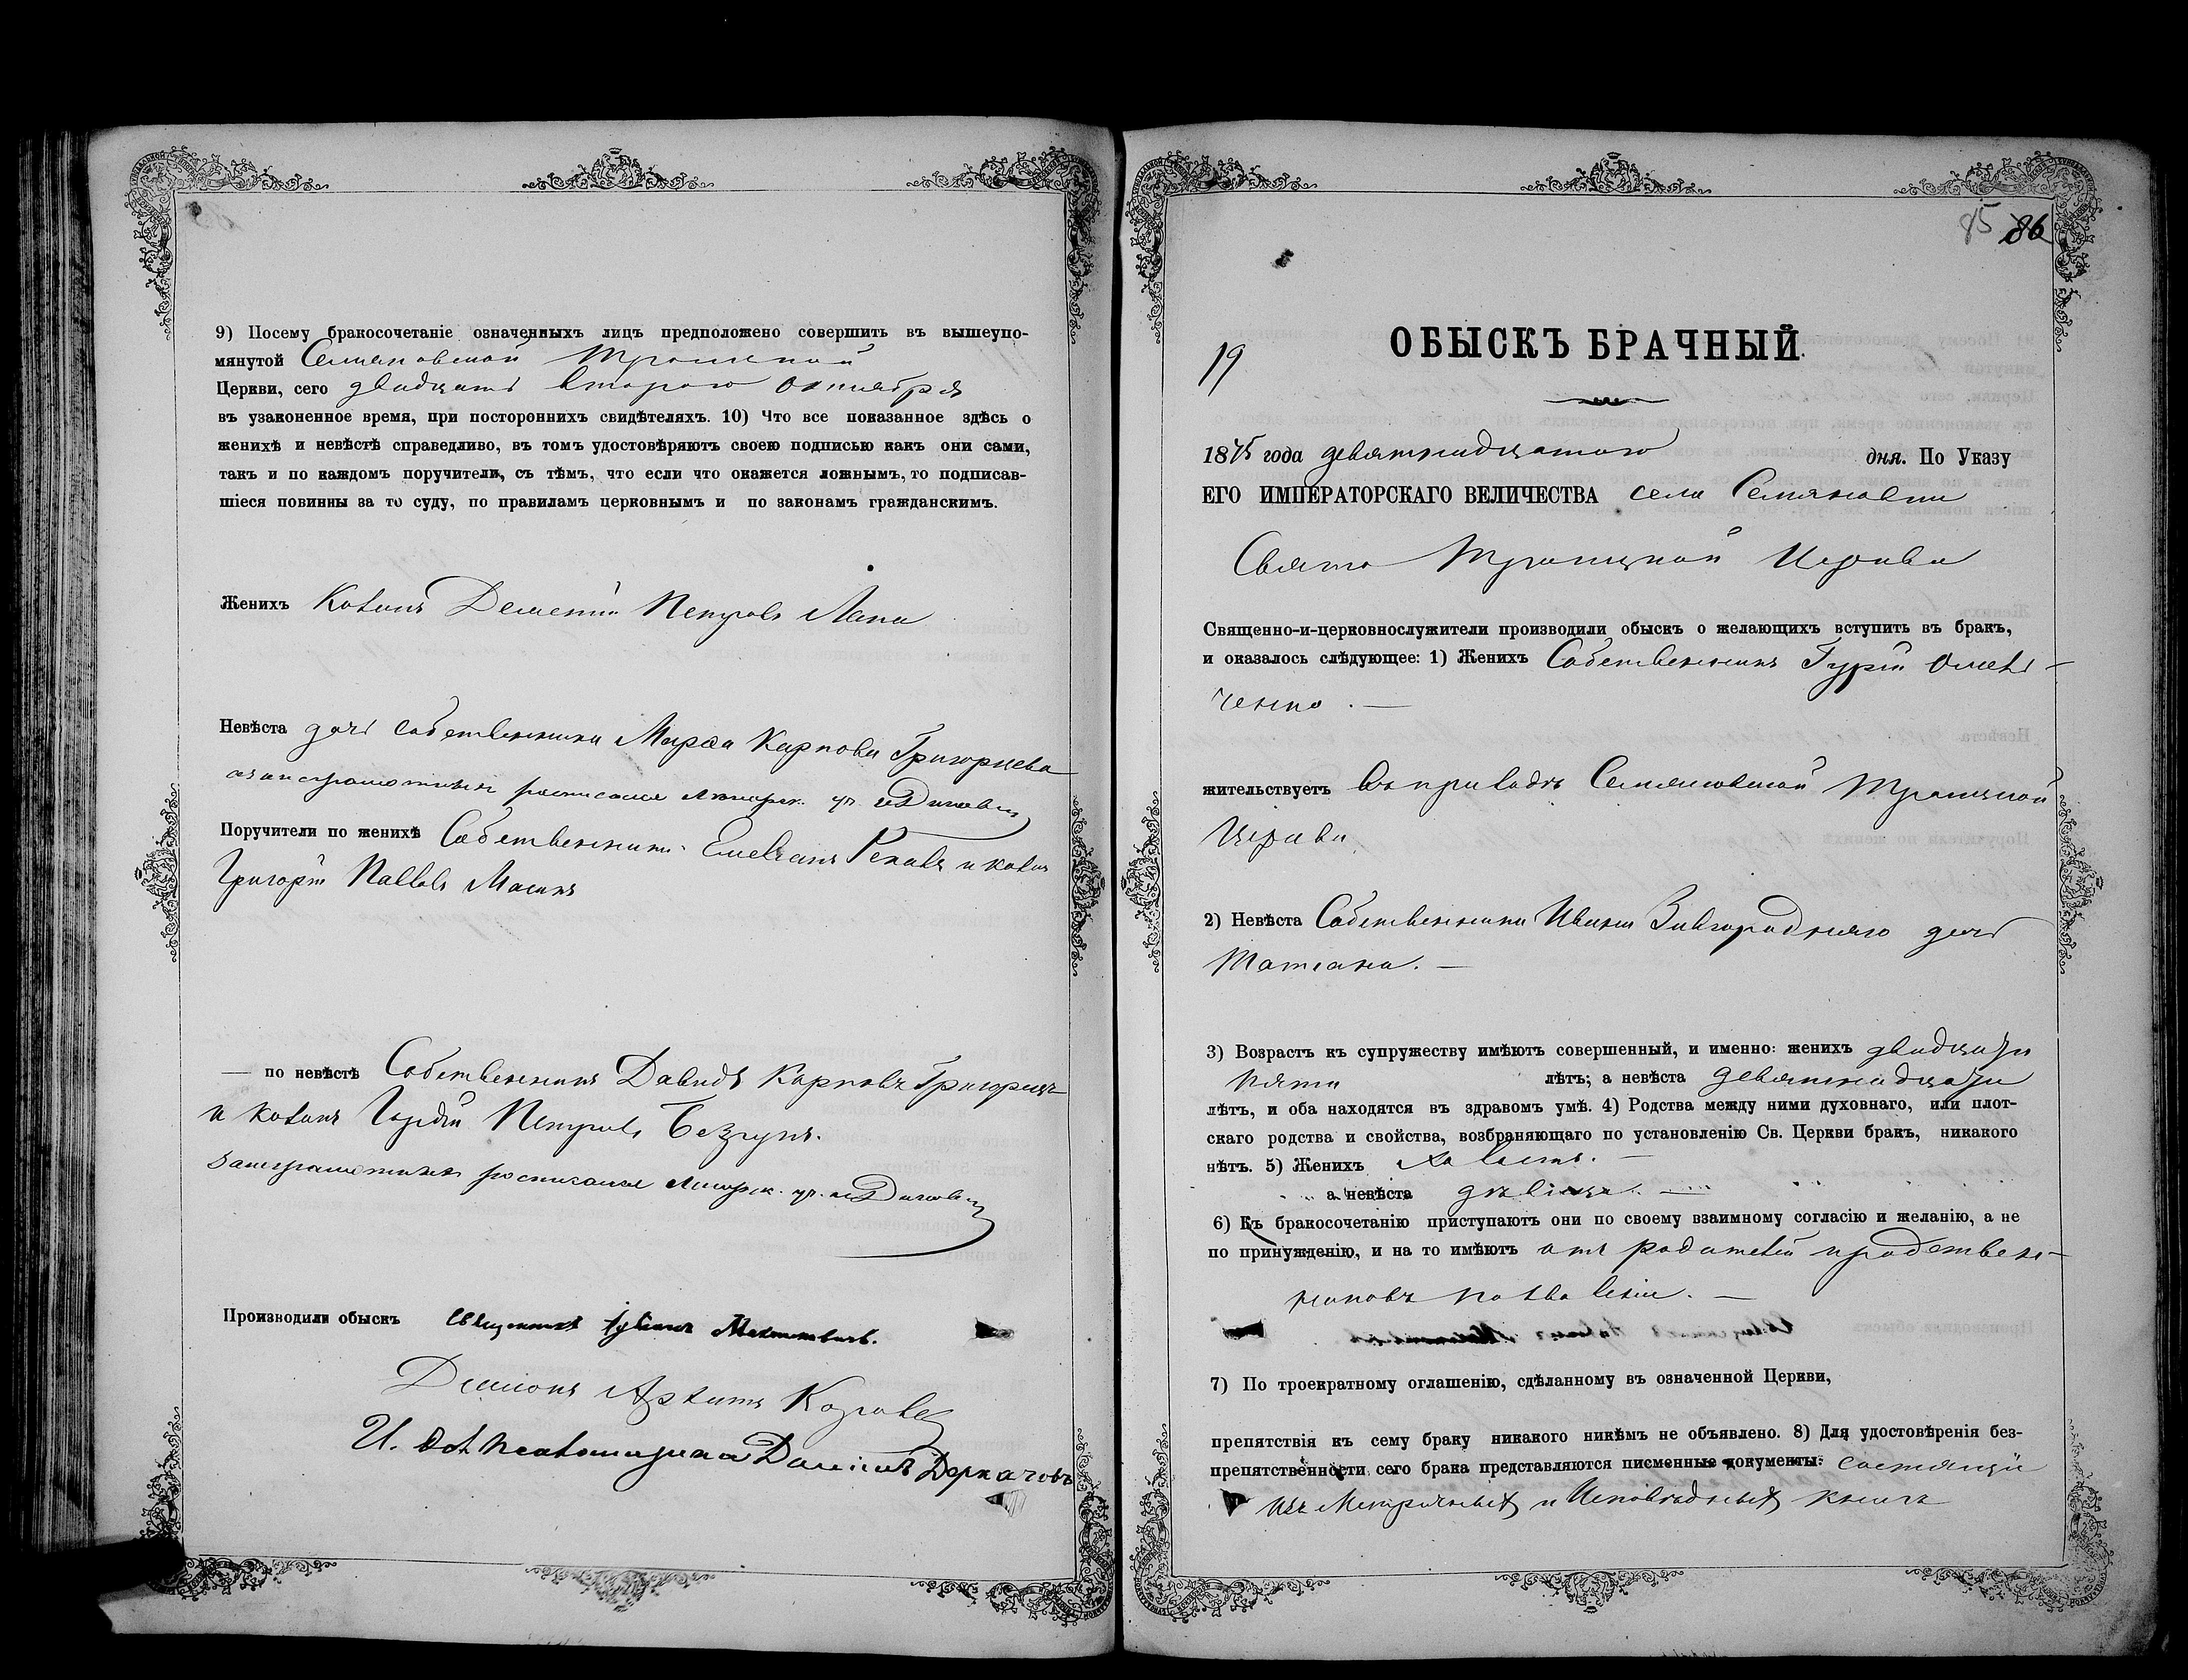 9) Посему бракосочетаніе означенныхъ лицъ предположено совершить въ вышеупо-
мянутой Семяновской Троицкой
Церкви, сего двадцать второго октября
въ узаконенное время, при постороннихъ свидѣтеляхъ. 10) Что все показанное здѣсь о
женихѣ и невѣстѣ справедливо, въ томъ удостовѣряютъ своею подписью какъ они сами,
такъ и по каждомъ поручители, съ тѣмъ, что если что окажется ложнымъ, то подписав-
шіеся повинны за то суду, по правиламъ церковнымъ и по законамъ гражданскимъ.
Женихъ Козакъ Дементій Петровъ Лапа
Невѣста дочь собственника Марѳа Карпова Григорцева
росписался
Поручители по женихѣ Собственникъ Емельянъ Рековъ и козакъ
Григорій Павловъ Масикъ
— по невѣстѣ Собственникъ Давидъ Карповъ Григорцевъ
и козакъ Гордій Петровъ Безгупъ.
за неграмотныхъ росписался
Производили обыскъ Священникъ Іуліанъ
Діаконъ Козловъ
И. дол. псаломщика Даміанъ Деркачовъ
85 86
ОБЫСКЪ БРАЧНЫЙ.
19
1875 года девятнадцатого дня. По Указу
ЕГО ИМПЕРАТОРСКАГО ВЕЛИЧЕСТВА села Семяновки
Свято Троицкой Церкви
Священно-и-церковнослужители производили обыскъ о желающихъ вступить въ бракъ,
и оказалось слѣдующее: 1) Женихъ Собственникъ Гурій Омель-
ченко. —
жительствуетъ въ приходѣ Семяновской Троицкой
Церкви
2) Невѣста Собственника Ивана Завгородняго дочь
Татіана. —
3) Возрастъ къ супружеству имѣютъ совершенный, и именно: женихъ двадцати
пяти лѣтъ; а невѣста девятнадцати
лѣтъ, и оба находятся въ здравомъ умѣ. 4) Родства между ними духовнаго, или плот-
скаго родства и свойства, возбраняющаго по установленію Св. Церкви бракъ, никакого
нѣтъ. 5) Женихъ холостъ. —
а невѣста дѣвица. —
6) Къ бракосочетанію приступаютъ они по своему взаимному согласію и желанію, а не
по принужденію, и на то имѣютъ отъ родителей и родствен-
никовъ позволеніе. —
7) По троекратному оглашенію, сдѣланному въ означенной Церкви,
препятствія къ сему браку никакого никѣмъ не объявлено. 8) Для удостовѣренія без-
препятственности сего брака представляются писменные документы: состоящіе
изъ Метричныхъ и Исповѣдныхъ книгъ